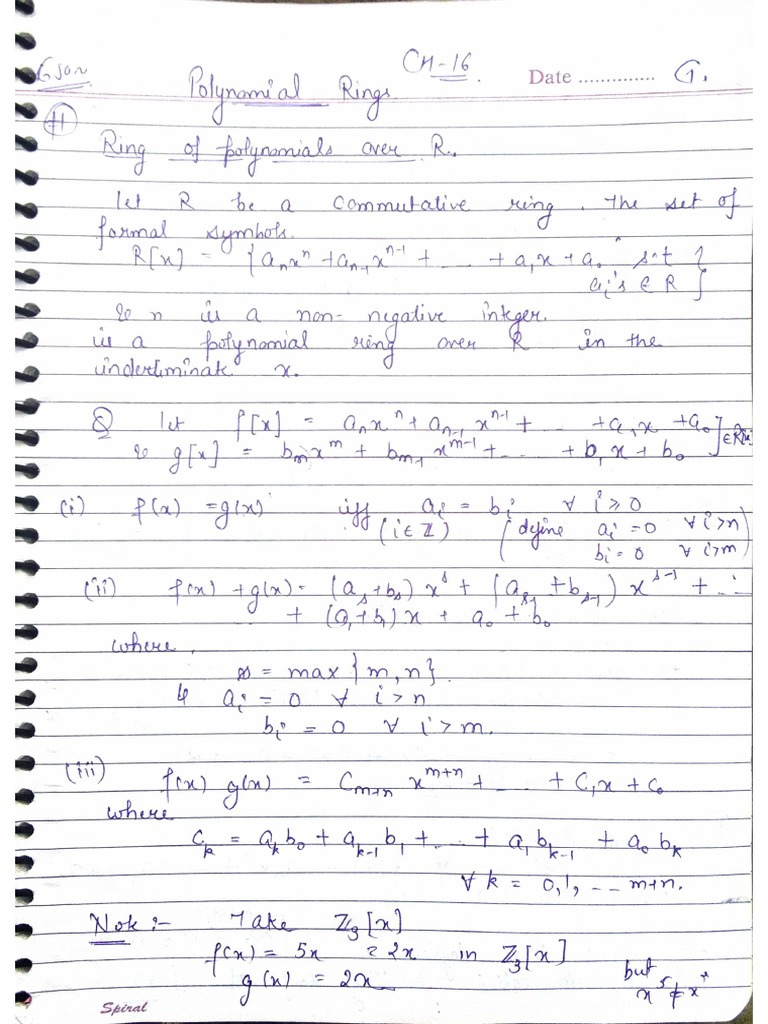 CH-16
Date .............. G.
Polynomial Rings
#1
Ring of polynomials over R.
let R be a commutative ring. The set of
formal symbols.
R[x] = { aₙxⁿ + aₙ₋₁xⁿ⁻¹ + ... + a₁x + a₀ s.t
aᵢ's ∈ R }
& n is a non-negative integer.
is a polynomial ring over R in the
inderliminate x.
Q let f[x] = aₙxⁿ + aₙ₋₁xⁿ⁻¹ + ... + a₁x + a₀ ] ∈ R[x]
& g[x] = bₘxᵐ + bₘ₋₁xᵐ⁻¹ + ... + b₁x + b₀
(i) f(x) = g(x) iff aᵢ = bᵢ ∀ i ≥ 0
(i ∈ ℤ) (define aᵢ = 0 ∀ i > n
bᵢ = 0 ∀ i > m)
(ii) f(x) + g(x) = (aₛ + bₛ) xˢ + (aₛ₋₁ + bₛ₋₁) xˢ⁻¹ + ...
+ (a₁ + b₁) x + a₀ + b₀
where,
s = max { m, n }.
& aᵢ = 0 ∀ i > n
bᵢ = 0 ∀ i > m.
(iii) f(x) g(x) = Cₘ₊ₙ xᵐ⁺ⁿ + ... + C₁x + C₀
where
Cₖ = aₖb₀ + aₖ₋₁b₁ + ... + a₁bₖ₋₁ + a₀bₖ
∀ k = 0, 1, -- m+n.
Note :- Take ℤ₃[x]
f(x) = 5x = 2x in ℤ₃[x]
g(x) = 2x
but
x⁵ ≠ x²
Spiral